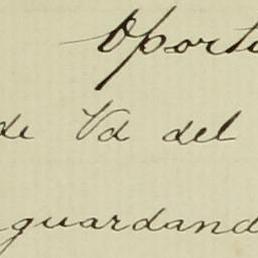 Oportu
de Vd del
guardand